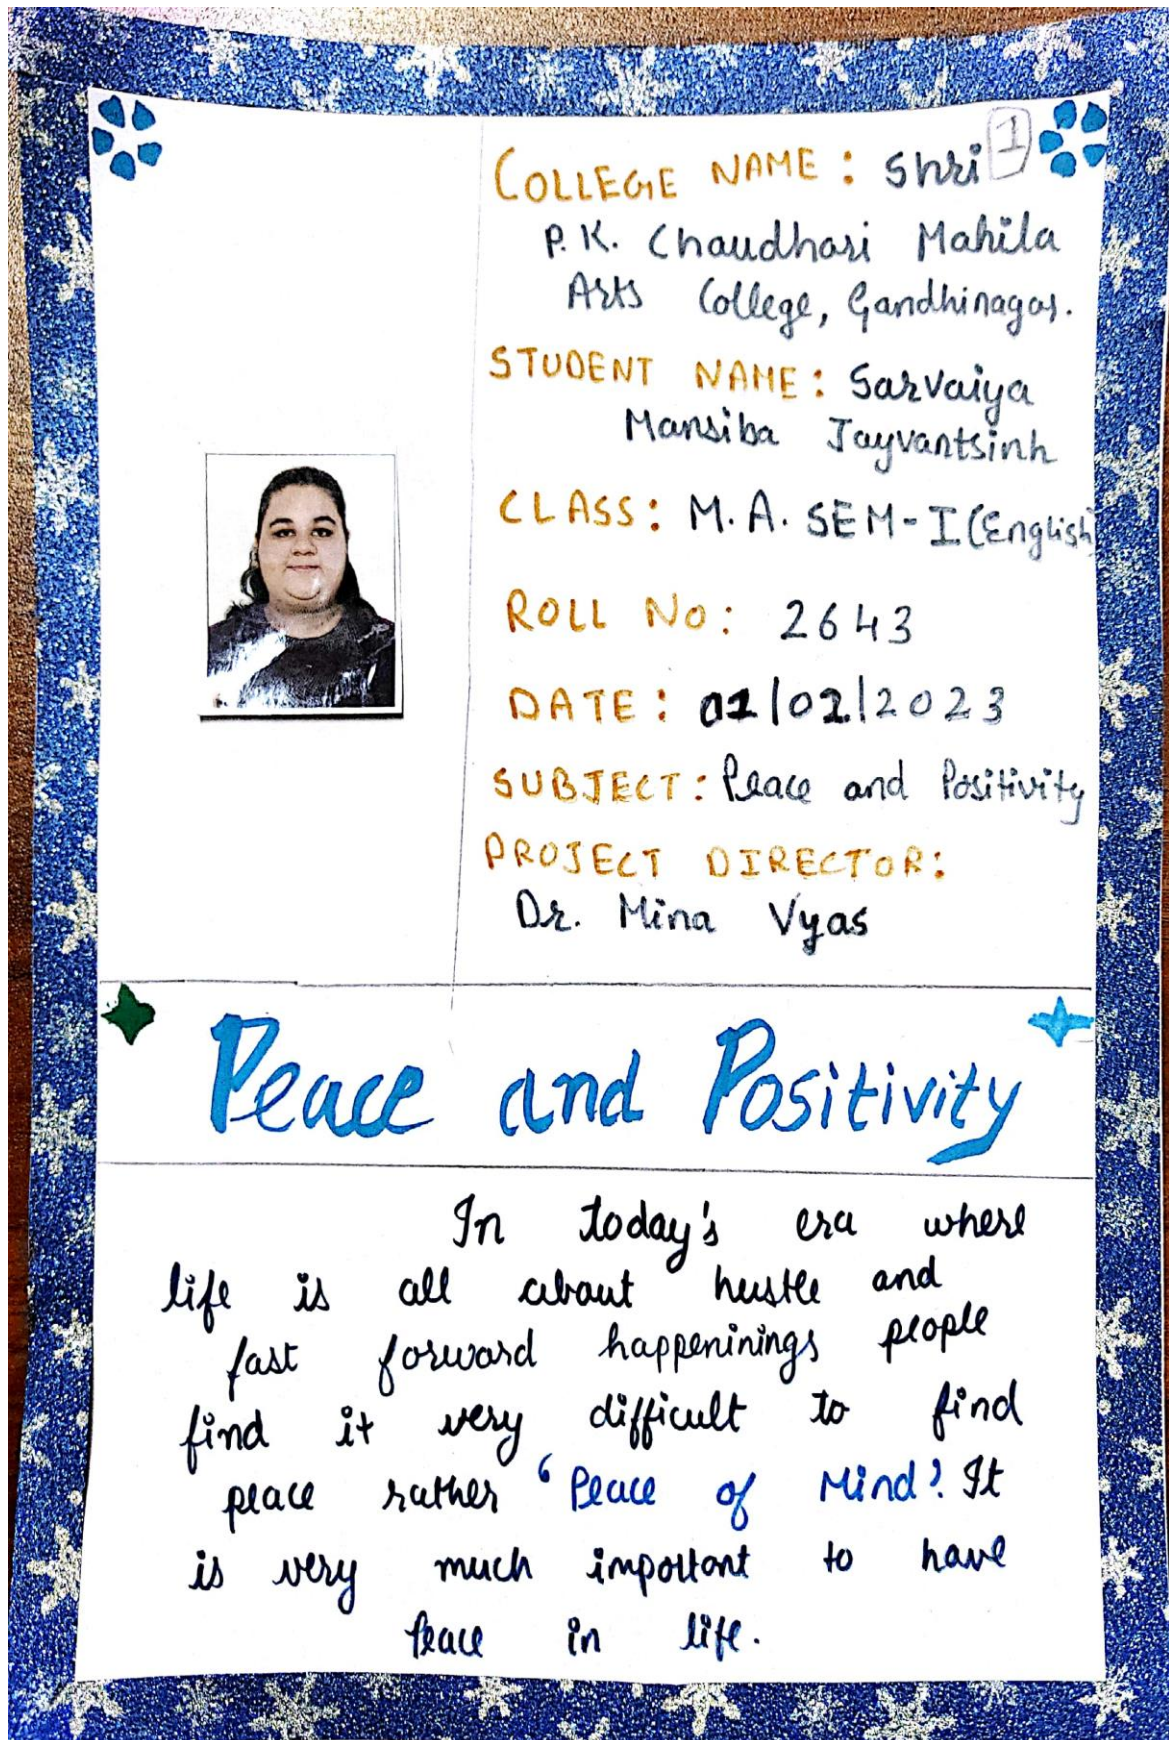 1
COLLEGE NAME : Shri
P. K. Chaudhari Mahila
Arts College, Gandhinagar.
STUDENT NAME : Sarvaiya
Mansiba Jayvantsinh
CLASS : M. A. SEM - I (English)
ROLL No : 2643
DATE : 01/02/2023
SUBJECT : Peace and Positivity
PROJECT DIRECTOR :
Dr. Mina Vyas
Peace and Positivity
In today's era where
life is all about hustle and
fast forward happeninings people
find it very difficult to find
peace rather ‘Peace of Mind’. It
is very much important to have
Peace in life.